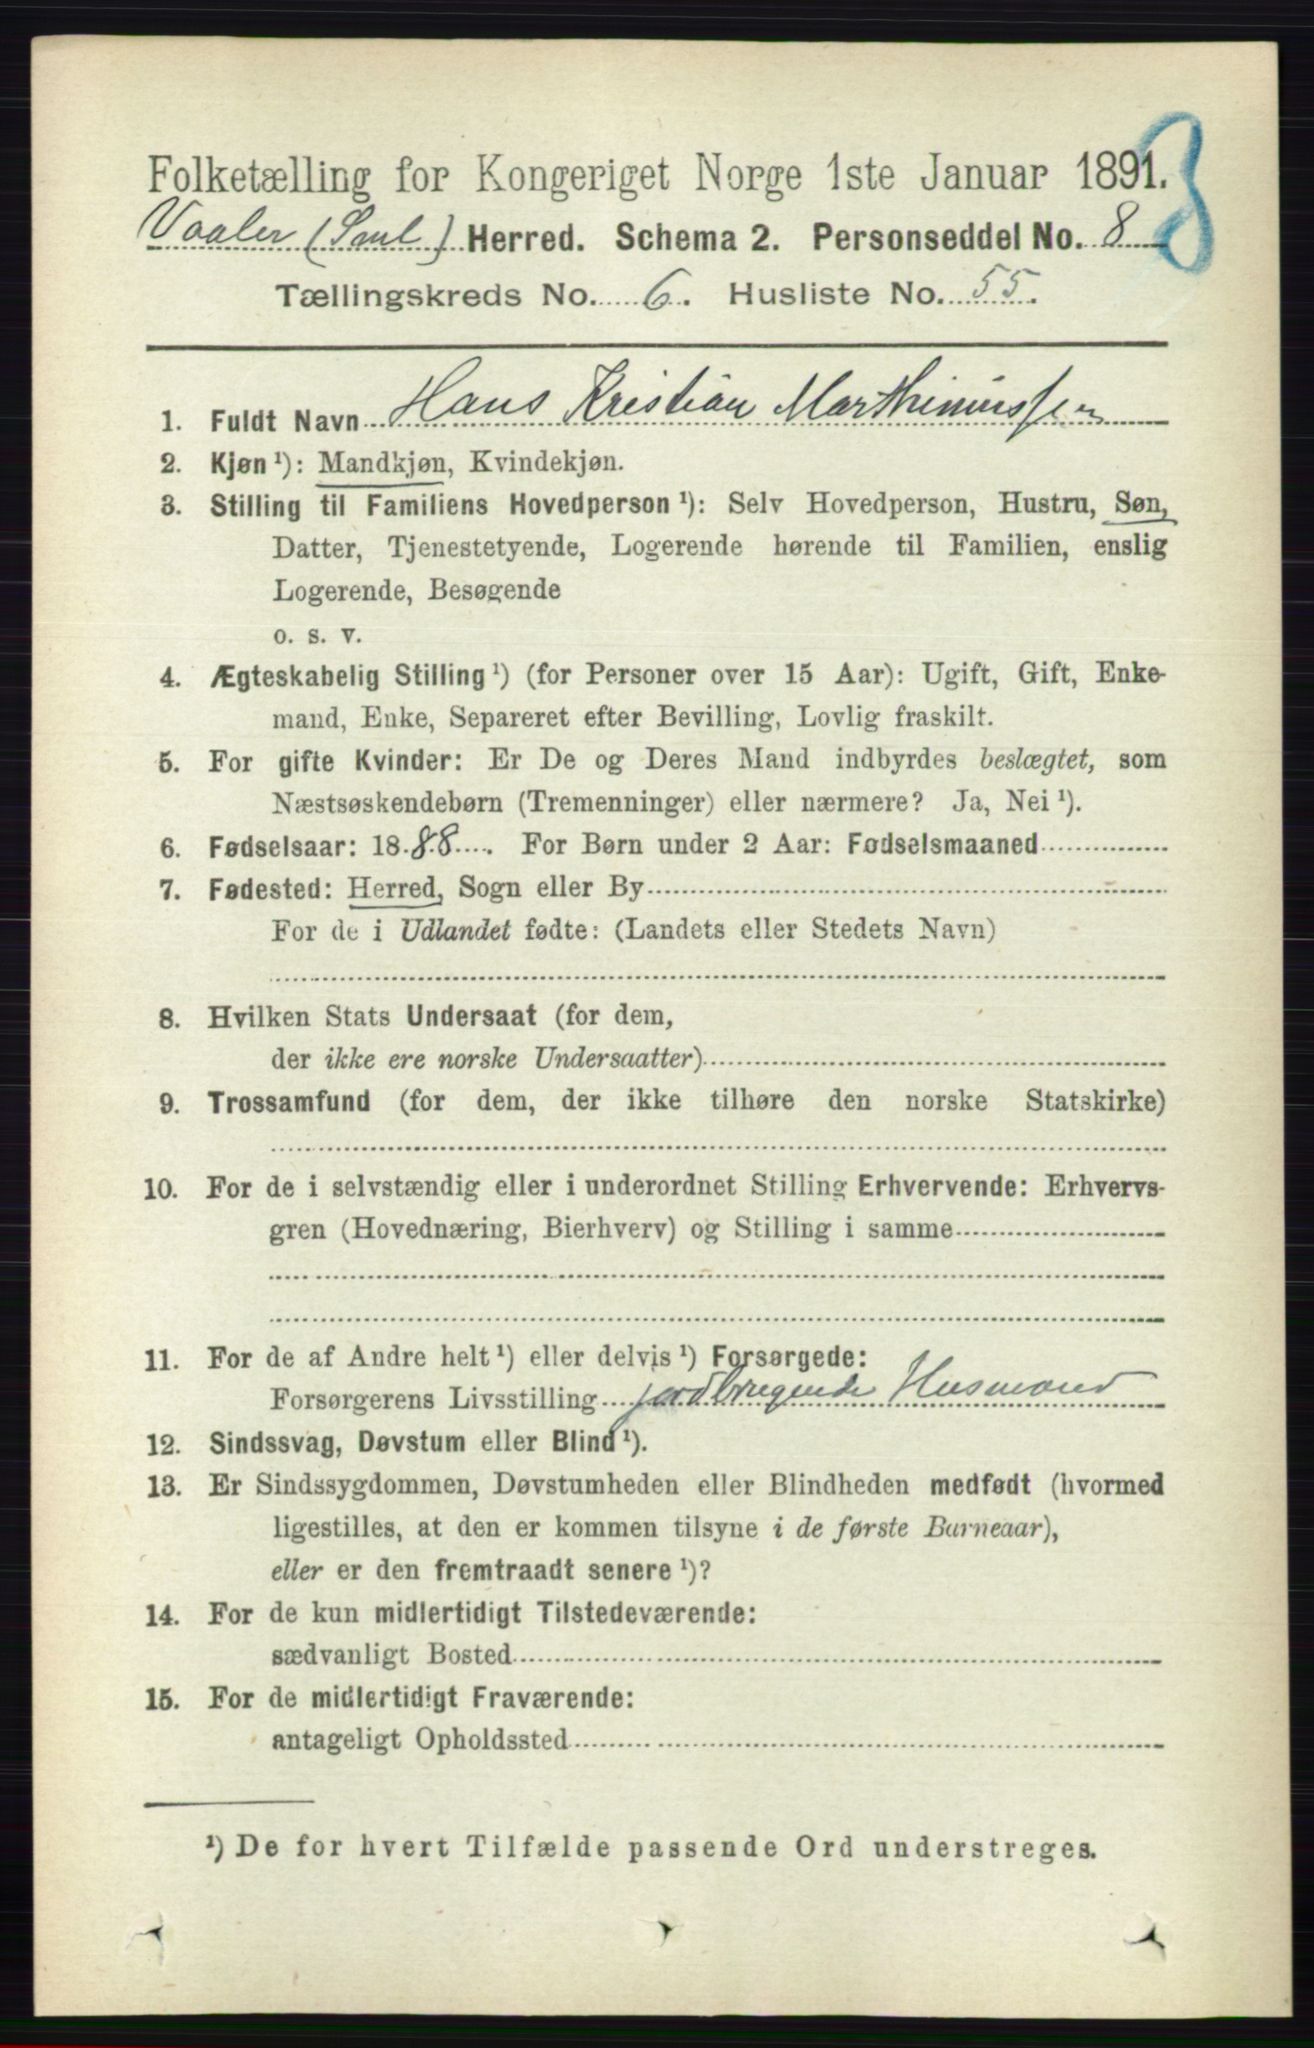 8
Folketælling for Kongeriget Norge 1ste Januar 1891.
Vaaler (Sml.) Herred. Schema 2. Personseddel No. 8
Tællingskreds No. 6. Husliste No. 55.
1. Fuldt Navn Hans Kristian Marthinussen
2. Kjøn ¹): Mandkjøn, Kvindekjøn.
3. Stilling til Familiens Hovedperson ¹): Selv Hovedperson, Hustru, Søn,
Datter, Tjenestetyende, Logerende hørende til Familien, enslig
Logerende, Besøgende
o. s. v.
4. Ægteskabelig Stilling ¹) (for Personer over 15 Aar): Ugift, Gift, Enke-
mand, Enke, Separeret efter Bevilling, Lovlig fraskilt.
5. For gifte Kvinder: Er De og Deres Mand indbyrdes beslægtet, som
Næstsøskendebørn (Tremenninger) eller nærmere? Ja, Nei ¹).
6. Fødselsaar: 1888. For Børn under 2 Aar: Fødselsmaaned
7. Fødested: Herred, Sogn eller By
For de i Udlandet fødte: (Landets eller Stedets Navn)
8. Hvilken Stats Undersaat (for dem,
der ikke ere norske Undersaatter)
9. Trossamfund (for dem, der ikke tilhøre den norske Statskirke)
10. For de i selvstændig eller i underordnet Stilling Erhvervende: Erhvervs-
gren (Hovednæring, Bierhverv) og Stilling i samme
11. For de af Andre helt ¹) eller delvis ¹) Forsørgede:
Forsørgerens Livsstilling jordbrugende Husmand
12. Sindssvag, Døvstum eller Blind ¹).
13. Er Sindssygdommen, Døvstumheden eller Blindheden medfødt (hvormed
ligestilles, at den er kommen tilsyne i de første Barneaar),
eller er den fremtraadt senere ¹)?
14. For de kun midlertidigt Tilstedeværende:
sædvanligt Bosted
15. For de midlertidigt Fraværende:
antageligt Opholdssted
¹) De for hvert Tilfælde passende Ord understreges.